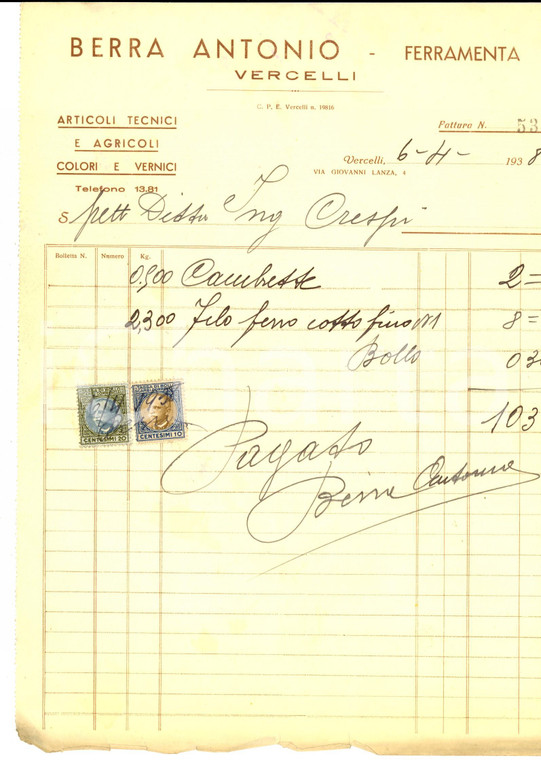 BERRA ANTONIO - FERRAMENTA
VERCELLI
C. P. E. Vercelli n. 19816
ARTICOLI TECNICI
E AGRICOLI
COLORI E VERNICI
Telefono 13.81
Fattura N. 53
Vercelli, 6-4- 1938
VIA GIOVANNI LANZA, 4
Spett Ditta Ing Crespi
Bolletta N. Numero Kg.
0,900 Cambrette 2=
2,300 Filo ferro cotto fino 8=
Bollo 0,3
103
CENTESIMI 20 CENTESIMI 10
Pagato
Berra Antonio